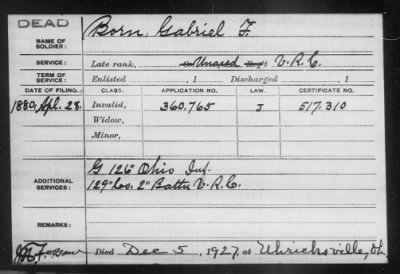 DEAD
NAME OF SOLDIER: Born, Gabriel F.
SERVICE: Late rank, Unassd V. R. C.
TERM OF SERVICE: Enlisted , 1 Discharged , 1
DATE OF FILING. CLASS. APPLICATION NO. LAW. CERTIFICATE NO.
1880, Apl. 28. Invalid, 360.765 J 517.310
Widow,
Minor,
ADDITIONAL SERVICES: G 126" Ohio Inf.
129" Co. 2" Battn V. R. C.
REMARKS:
Died Dec 5, 1927, at Uhrichsville, Oh.